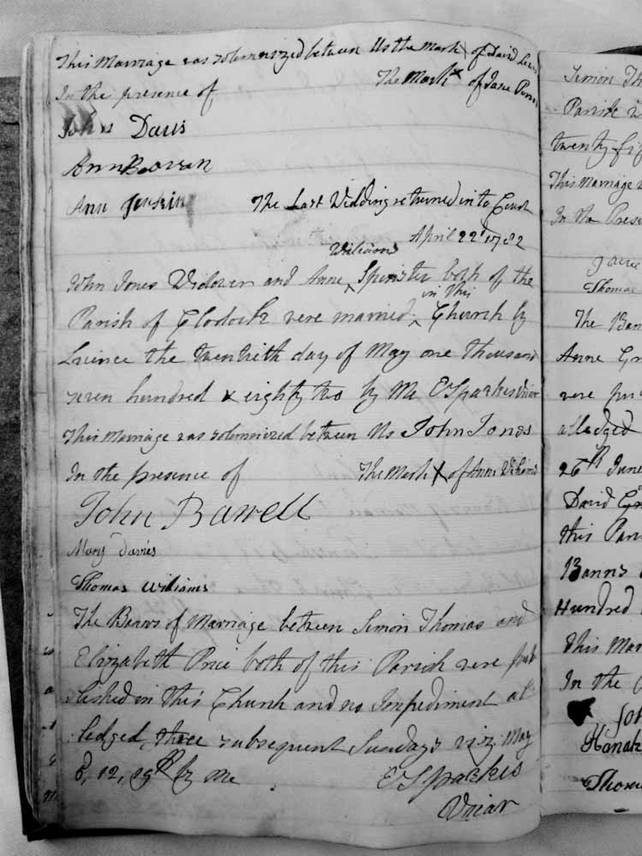 This Marriage was solemnized between Us the Mark X of David
In the presence of The Mark X of Jane
John Davis
Ann
Ann Jenkin The Last Wedding returned in to Court
April 22d 1782
Williams
John Jones Widower and Anne ‸ Spinster both of the
in this
Parish of Clodock were married ‸ Church by
Licence the twentieth day of May one thousand
seven hundred & eighty two by Me E Sparkes Vicar
This Marriage was solemnized between Us John Jones
In the presence of The Mark X of Anne Williams
John Barvell
Mary Davies
Thomas Williams
The Banns of Marriage between Simon Thomas and
Elizabeth Price both of this Parish were pub
lished in this Church and no Impediment al
ledged, three subsequent Sundays viz. May
12, 19th by me E Sparkes
Vicar
Simon
Parish
twenty
This Marriage
In the
Thomas
The
Anne
were
alledged
26th June
David
this
Banns
Hundred
This
In the
Hanah